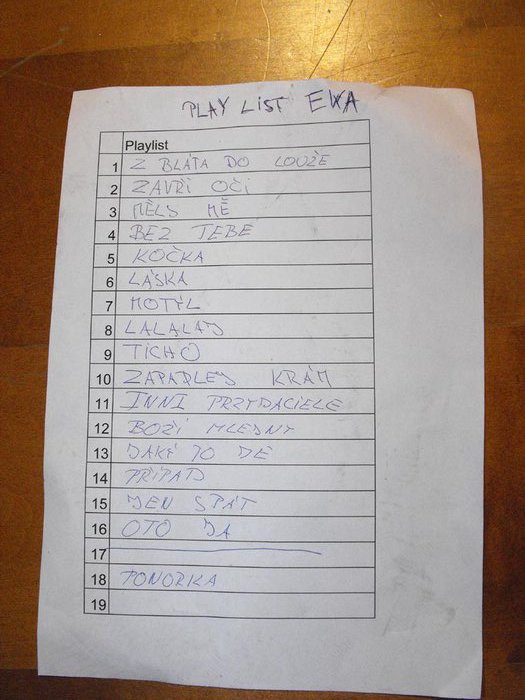 PLAY LIST EWA
Playlist
1 Z BLÁTA DO LOUŽE
2 ZAVŘI OČI
3 MĚLS MĚ
4 BEZ TEBE
5 KOČKA
6 LÁSKA
7 MOTÝL
8 LALALAJ
9 TICHO
10 ZAPADLEJ KRÁM
11 INNI PRZYJACIELE
12 BOŽÍ MLEJNY
13 JAKÉ TO JE
14 PŘÍPAD
15 JEN SPÁT
16 OTO JA
17
18 PONORKA
19